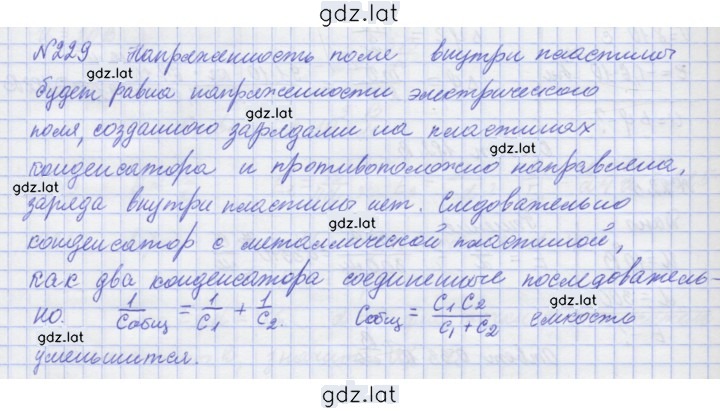 gdz.lat
№229 Напряженность поля внутри пластины
gdz.lat
gdz.lat
будет равна напряженности электрического
поля, созданного зарядами на пластинах
gdz.lat
конденсатора и противоположно направлена,
gdz.lat
заряда внутри пластины нет. Следовательно
gdz.lat
конденсатор с металлической пластиной,
как два конденсатора соединенные последователь-
gdz.lat
но. 1/Cобщ = 1/C1 + 1/C2. Cобщ = C1 C2/C1 + C2 емкость
gdz.lat
уменьшится.
gdz.lat